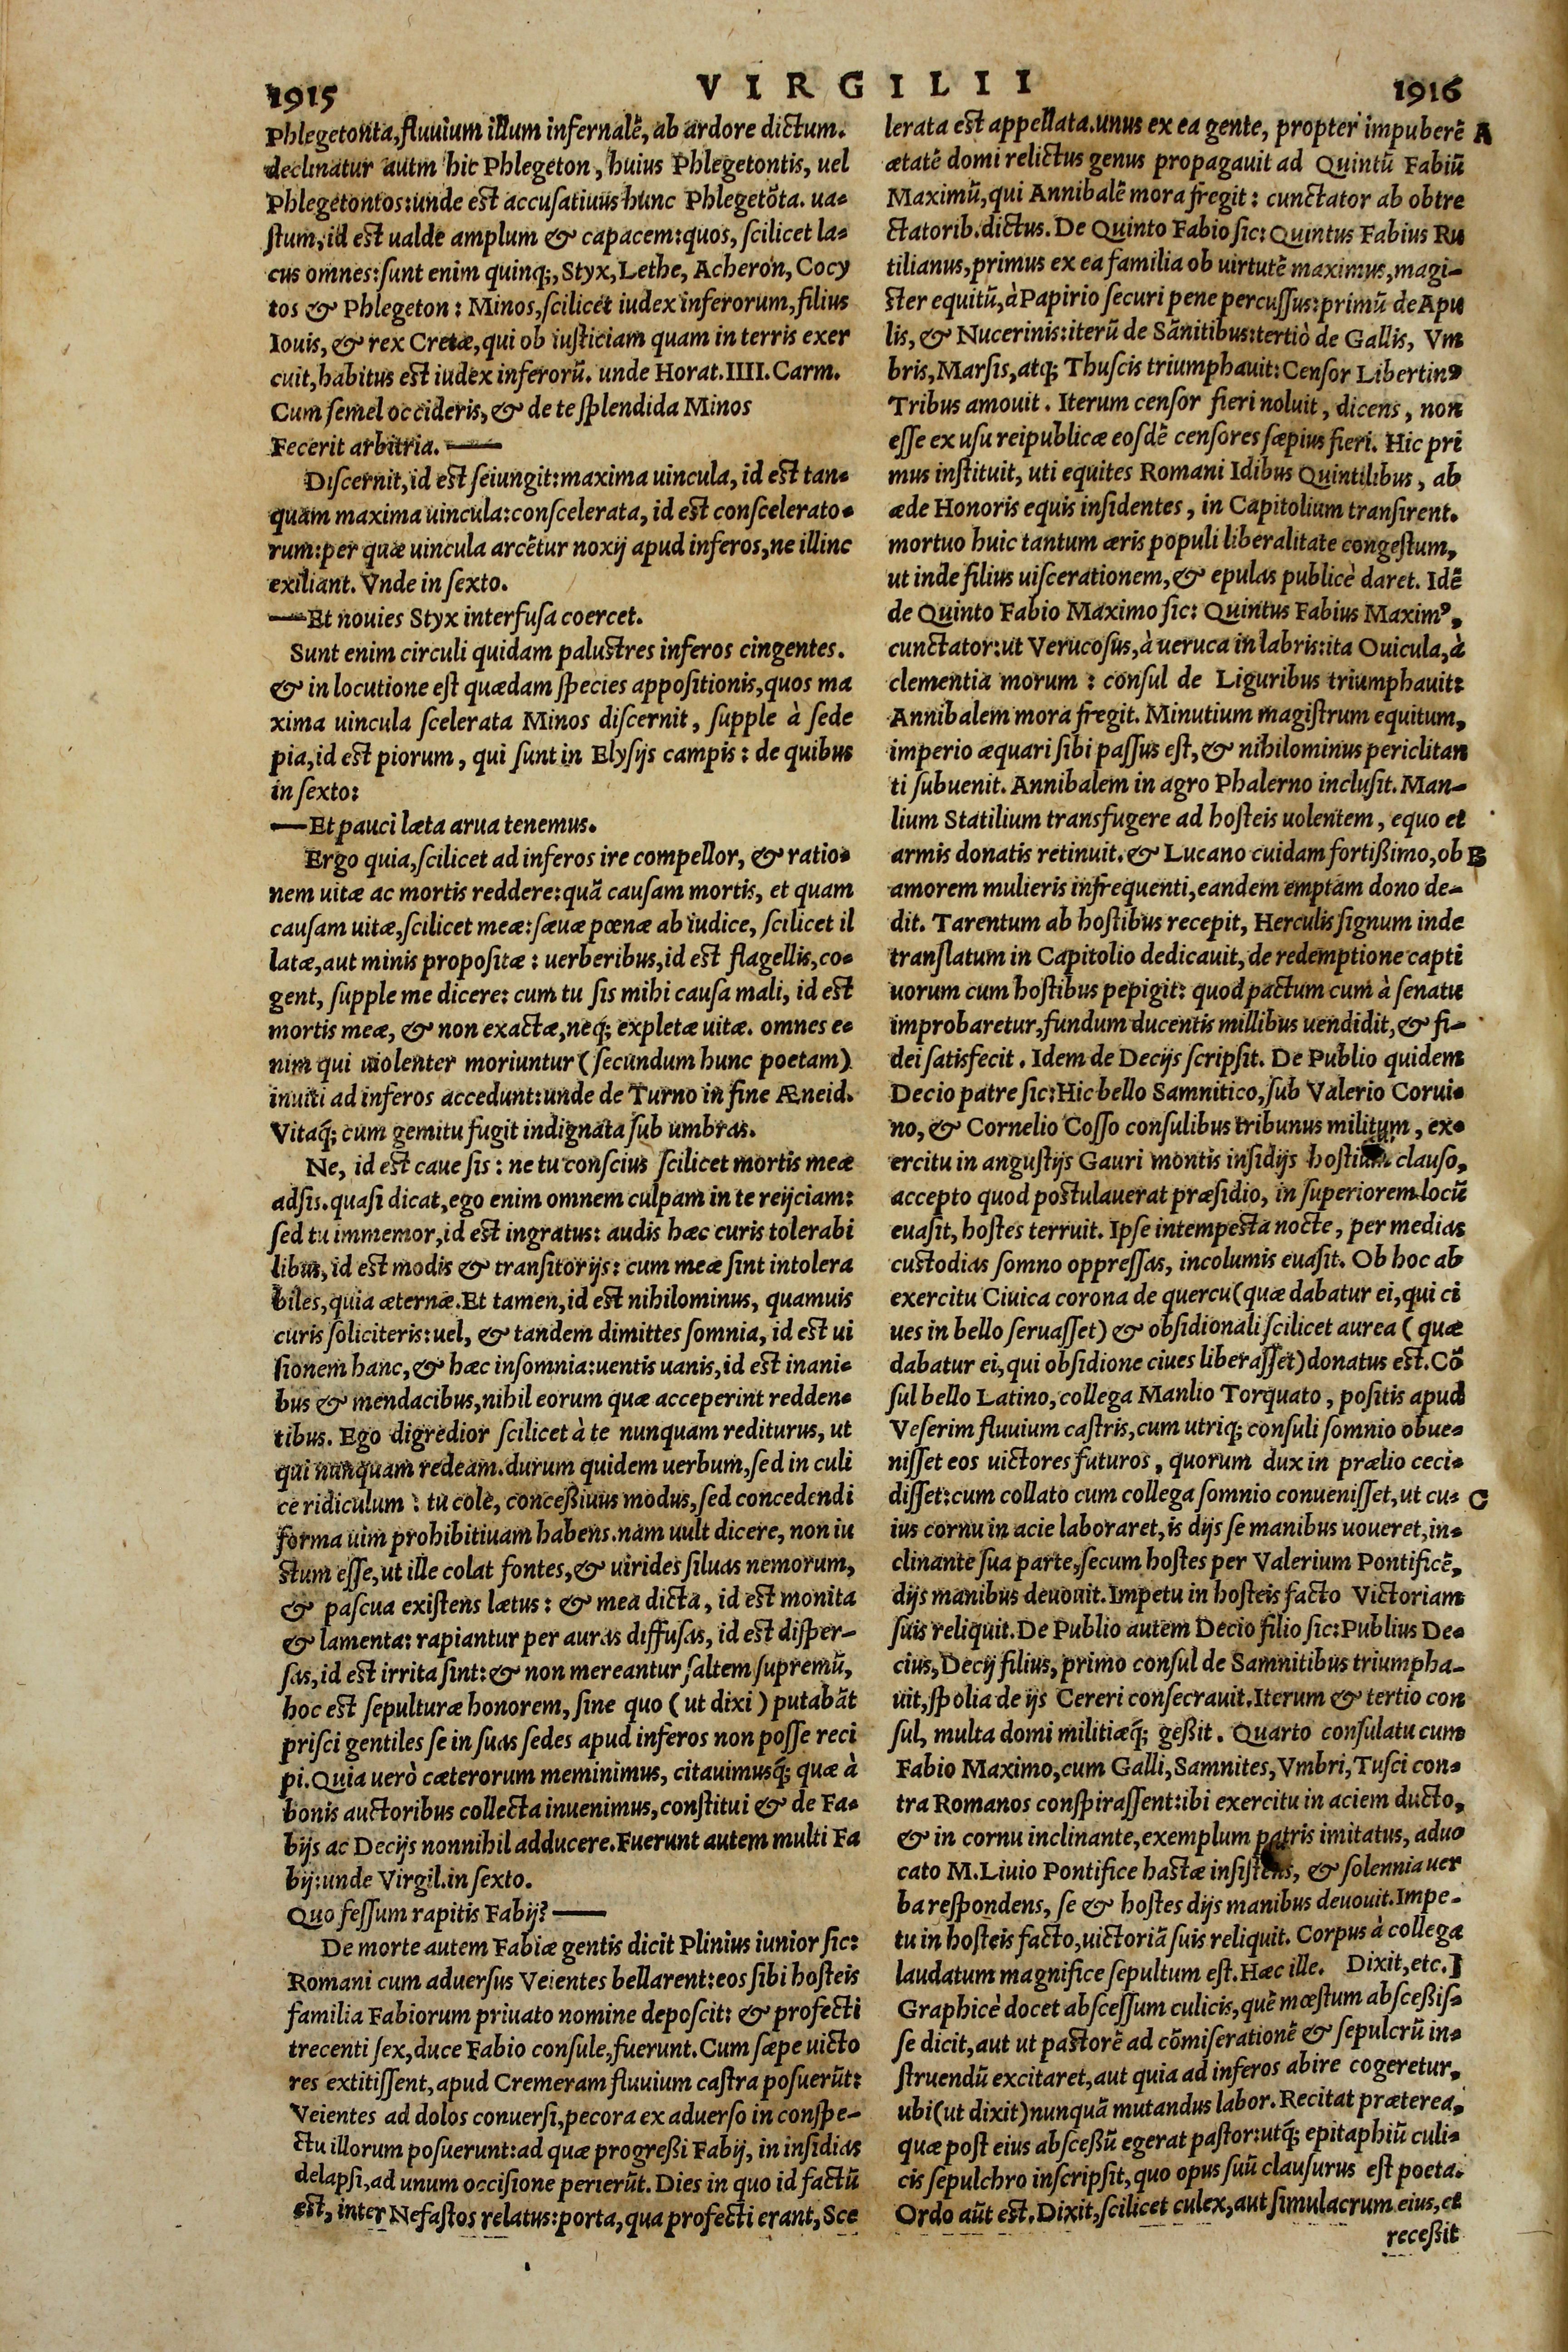 1915
VIRGILII
1916
Phlegetonta, fluuium illum infernalē, ab ardore dictum.
declinatur autm hic Phlegeton, huius Phlegetontis, uel
Phlegetontos: unde est accusatiuus hunc Phlegetōta. ua-
ſtum, id est ualde amplum & capacem: quos, ſcilicet la-
cus omnes: ſunt enim quinq;, Styx, Lethe, Acheron, Cocy
tos & Phlegeton: Minos, ſcilicet iudex inferorum, filius
Iouis, & rex Cretæ, qui ob iuſticiam quam in terris exer
cuit, habitus est iudex inferorū. unde Horat. IIII. Carm.
Cum ſemel occideris, & de te ſplendida Minos
Fecerit arbitria. —
Diſcernit, id est ſeiungit: maxima uincula, id est tan-
quam maxima uincula: conſcelerata, id est conſcelerato-
rum: per quæ uincula arcētur noxij apud inferos, ne illinc
exiliant. Vnde in ſexto.
—Et nouies Styx interfuſa coercet.
Sunt enim circuli quidam palustres inferos cingentes.
& in locutione eſt quædam ſpecies appoſitionis, quos ma
xima uincula ſcelerata Minos diſcernit, ſupple à ſede
pia, id est piorum, qui ſunt in Elyſijs campis: de quibus
in ſexto:
—Et pauci læta arua tenemus.
Ergo quia, ſcilicet ad inferos ire compellor, & ratio-
nem uitæ ac mortis reddere: quā cauſam mortis, et quam
cauſam uitæ, ſcilicet meæ: ſæuæ pœnæ ab iudice, ſcilicet il
latæ, aut minis propoſitæ: uerberibus, id est flagellis, co-
gent, ſupple me dicere: cum tu ſis mihi cauſa mali, id est
mortis meæ, & non exactæ, neq; expletæ uitæ. omnes e-
nim qui uiolenter moriuntur (ſecundum hunc poetam)
inuiti ad inferos accedunt: unde de Turno in fine Æneid.
Vitaq́; cum gemitu fugit indignata ſub umbras.
Ne, id est caue ſis: ne tu conſcius ſcilicet mortis meæ
adſis. quaſi dicat, ego enim omnem culpam in te reijciam:
ſed tu immemor, id est ingratus: audis hæc curis tolerabi
libus, id est modis & tranſitorijs: cum meæ ſint intolera
biles, quia æternæ. Et tamen, id est nihilominus, quamuis
curis ſoliciteris: uel, & tandem dimittes ſomnia, id est ui
ſionem hanc, & hæc inſomnia: uentis uanis, id est inani-
bus & mendacibus, nihil eorum quæ acceperint redden-
tibus. Ego digredior ſcilicet à te nunquam rediturus, ut
qui nunquam redeam. durum quidem uerbum, ſed in culi
ce ridiculum: tu cole, conceßiuus modus, ſed concedendi
forma uim prohibitiuam habens. nam uult dicere, non iu
stum eſſe, ut ille colat fontes, & uirides ſiluas nemorum,
& paſcua exiſtens lætus: & mea dicta, id est monita
& lamenta: rapiantur per auras diffuſas, id est diſper-
ſas, id est irrita ſint: & non mereantur ſaltem ſupremū,
hoc est ſepulturæ honorem, ſine quo (ut dixi) putabāt
priſci gentiles ſe in ſuas ſedes apud inferos non poſſe reci
pi. Quia uerò cæterorum meminimus, citauimusq́; quæ à
bonis auctoribus collecta inuenimus, conſtitui & de Fa-
bijs ac Decijs nonnihil adducere. Fuerunt autem multi Fa
bij: unde Virgil. in ſexto.
Quo feſſum rapitis Fabij? —
De morte autem Fabiæ gentis dicit Plinius iunior ſic:
Romani cum aduerſus Veientes bellarent: eos ſibi hoſteis
familia Fabiorum priuato nomine depoſcit: & profecti
trecenti ſex, duce Fabio conſule, fuerunt. Cum ſæpe uicto
res extitiſſent, apud Cremeram fluuium caſtra poſuerūt:
Veientes ad dolos conuerſi, pecora ex aduerſo in conſpe-
ctu illorum poſuerunt: ad quæ progreßi Fabij, in inſidias
delapſi, ad unum occiſione perierūt. Dies in quo id factū
est, inter Nefaſtos relatus: porta, qua profecti erant, Sce
lerata est appellata. unus ex ea gente, propter impuberē A
ætatē domi relictus genus propagauit ad Quintū Fabiū
Maximū, qui Annibalē mora fregit: cunctator ab obtre
ctatorib. dictus. De Quinto Fabio ſic: Quintus Fabius Ru
tilianus, primus ex ea familia ob uirtutē maximus, magi-
ster equitū, à Papirio ſecuri pene percuſſus: primū de Apu
lis, & Nucerinis: iterū de Sānitibus: tertiò de Gallis, Vm
bris, Marſis, atq; Thuſcis triumphauit: Cenſor Libertinꝰ
Tribus amouit. Iterum cenſor fieri noluit, dicens, non
eſſe ex uſu reipublicæ eoſdē cenſores ſæpius fieri. Hic pri
mus inſtituit, uti equites Romani Idibus Quintilibus, ab
æde Honoris equis inſidentes, in Capitolium tranſirent.
mortuo huic tantum æris populi liberalitate congeſtum,
ut inde filius uiſcerationem, & epulas publicè daret. Idē
de Quinto Fabio Maximo ſic: Quintus Fabius Maximꝰ,
cunctator: ut Verucoſus, à ueruca in labris: ita Ouicula, à
clementia morum: conſul de Liguribus triumphauit:
Annibalem mora fregit. Minutium magiſtrum equitum,
imperio æquari ſibi paſſus eſt, & nihilominus periclitan
ti ſubuenit. Annibalem in agro Phalerno incluſit. Man-
lium Statilium transfugere ad hoſteis uolentem, equo et
armis donatis retinuit. & Lucano cuidam fortißimo, ob B
amorem mulieris infrequenti, eandem emptam dono de-
dit. Tarentum ab hoſtibus recepit, Herculis ſignum inde
tranſlatum in Capitolio dedicauit, de redemptione capti
uorum cum hoſtibus pepigit: quod pactum cum à ſenatu
improbaretur, fundum ducentis millibus uendidit, & fi-
dei ſatisfecit. Idem de Decijs ſcripſit. De Publio quidem
Decio patre ſic: Hic bello Samnitico, ſub Valerio Corui-
no, & Cornelio Coſſo conſulibus tribunus militum, ex-
ercitu in anguſtijs Gauri montis inſidijs hoſtium clauſo,
accepto quod poſtulauerat præſidio, in ſuperiorem locū
euaſit, hoſtes terruit. Ipſe intempeſta nocte, per medias
cuſtodias ſomno oppreſſas, incolumis euaſit. Ob hoc ab
exercitu Ciuica corona de quercu (quæ dabatur ei, qui ci
ues in bello ſeruaſſet) & obſidionali ſcilicet aurea (quæ
dabatur ei, qui obſidione ciues liberaſſet) donatus est. Cō
ſul bello Latino, collega Manlio Torquato, poſitis apud
Veſerim fluuium caſtris, cum utriq; conſuli ſomnio obue-
niſſet eos uictores futuros, quorum dux in prælio ceci-
diſſet: cum collato cum collega ſomnio conueniſſet, ut cu- C
ius cornu in acie laboraret, is dijs ſe manibus uoueret, in-
clinante ſua parte, ſecum hoſtes per Valerium Pontificē,
dijs manibus deuouit. Impetu in hoſteis facto Victoriam
ſuis reliquit. De Publio autem Decio filio ſic: Publius De-
cius, Decij filius, primo conſul de Samnitibus triumpha-
uit, ſpolia de ijs Cereri conſecrauit. Iterum & tertio con
ſul, multa domi militiæq́; geßit. Quarto conſulatu cum
Fabio Maximo, cum Galli, Samnites, Vmbri, Tuſci con-
tra Romanos conſpiraſſent: ibi exercitu in aciem ducto,
& in cornu inclinante, exemplum patris imitatus, aduo
cato M. Liuio Pontifice haſtæ inſiſtens, & ſolennia uer
ba reſpondens, ſe & hoſtes dijs manibus deuouit. Impe-
tu in hoſteis facto, uictoriā ſuis reliquit. Corpus à collega
laudatum magnifice ſepultum eſt. Hæc ille. Dixit, etc.]
Graphicè docet abſceſſum culicis, quē mœſtum abſceßiſ-
ſe dicit, aut ut paſtorē ad cōmiſerationē & ſepulcrū in-
ſtruendū excitaret, aut quia ad inferos abire cogeretur,
ubi (ut dixit) nunquā mutandus labor. Recitat præterea,
quæ poſt eius abſceßū egerat paſtor: utq́; epitaphiū culi-
cis ſepulchro inſcripſit, quo opus ſuū clauſurus eſt poeta.
Ordo aūt est. Dixit, ſcilicet culex, aut ſimulacrum eius, et
receßit